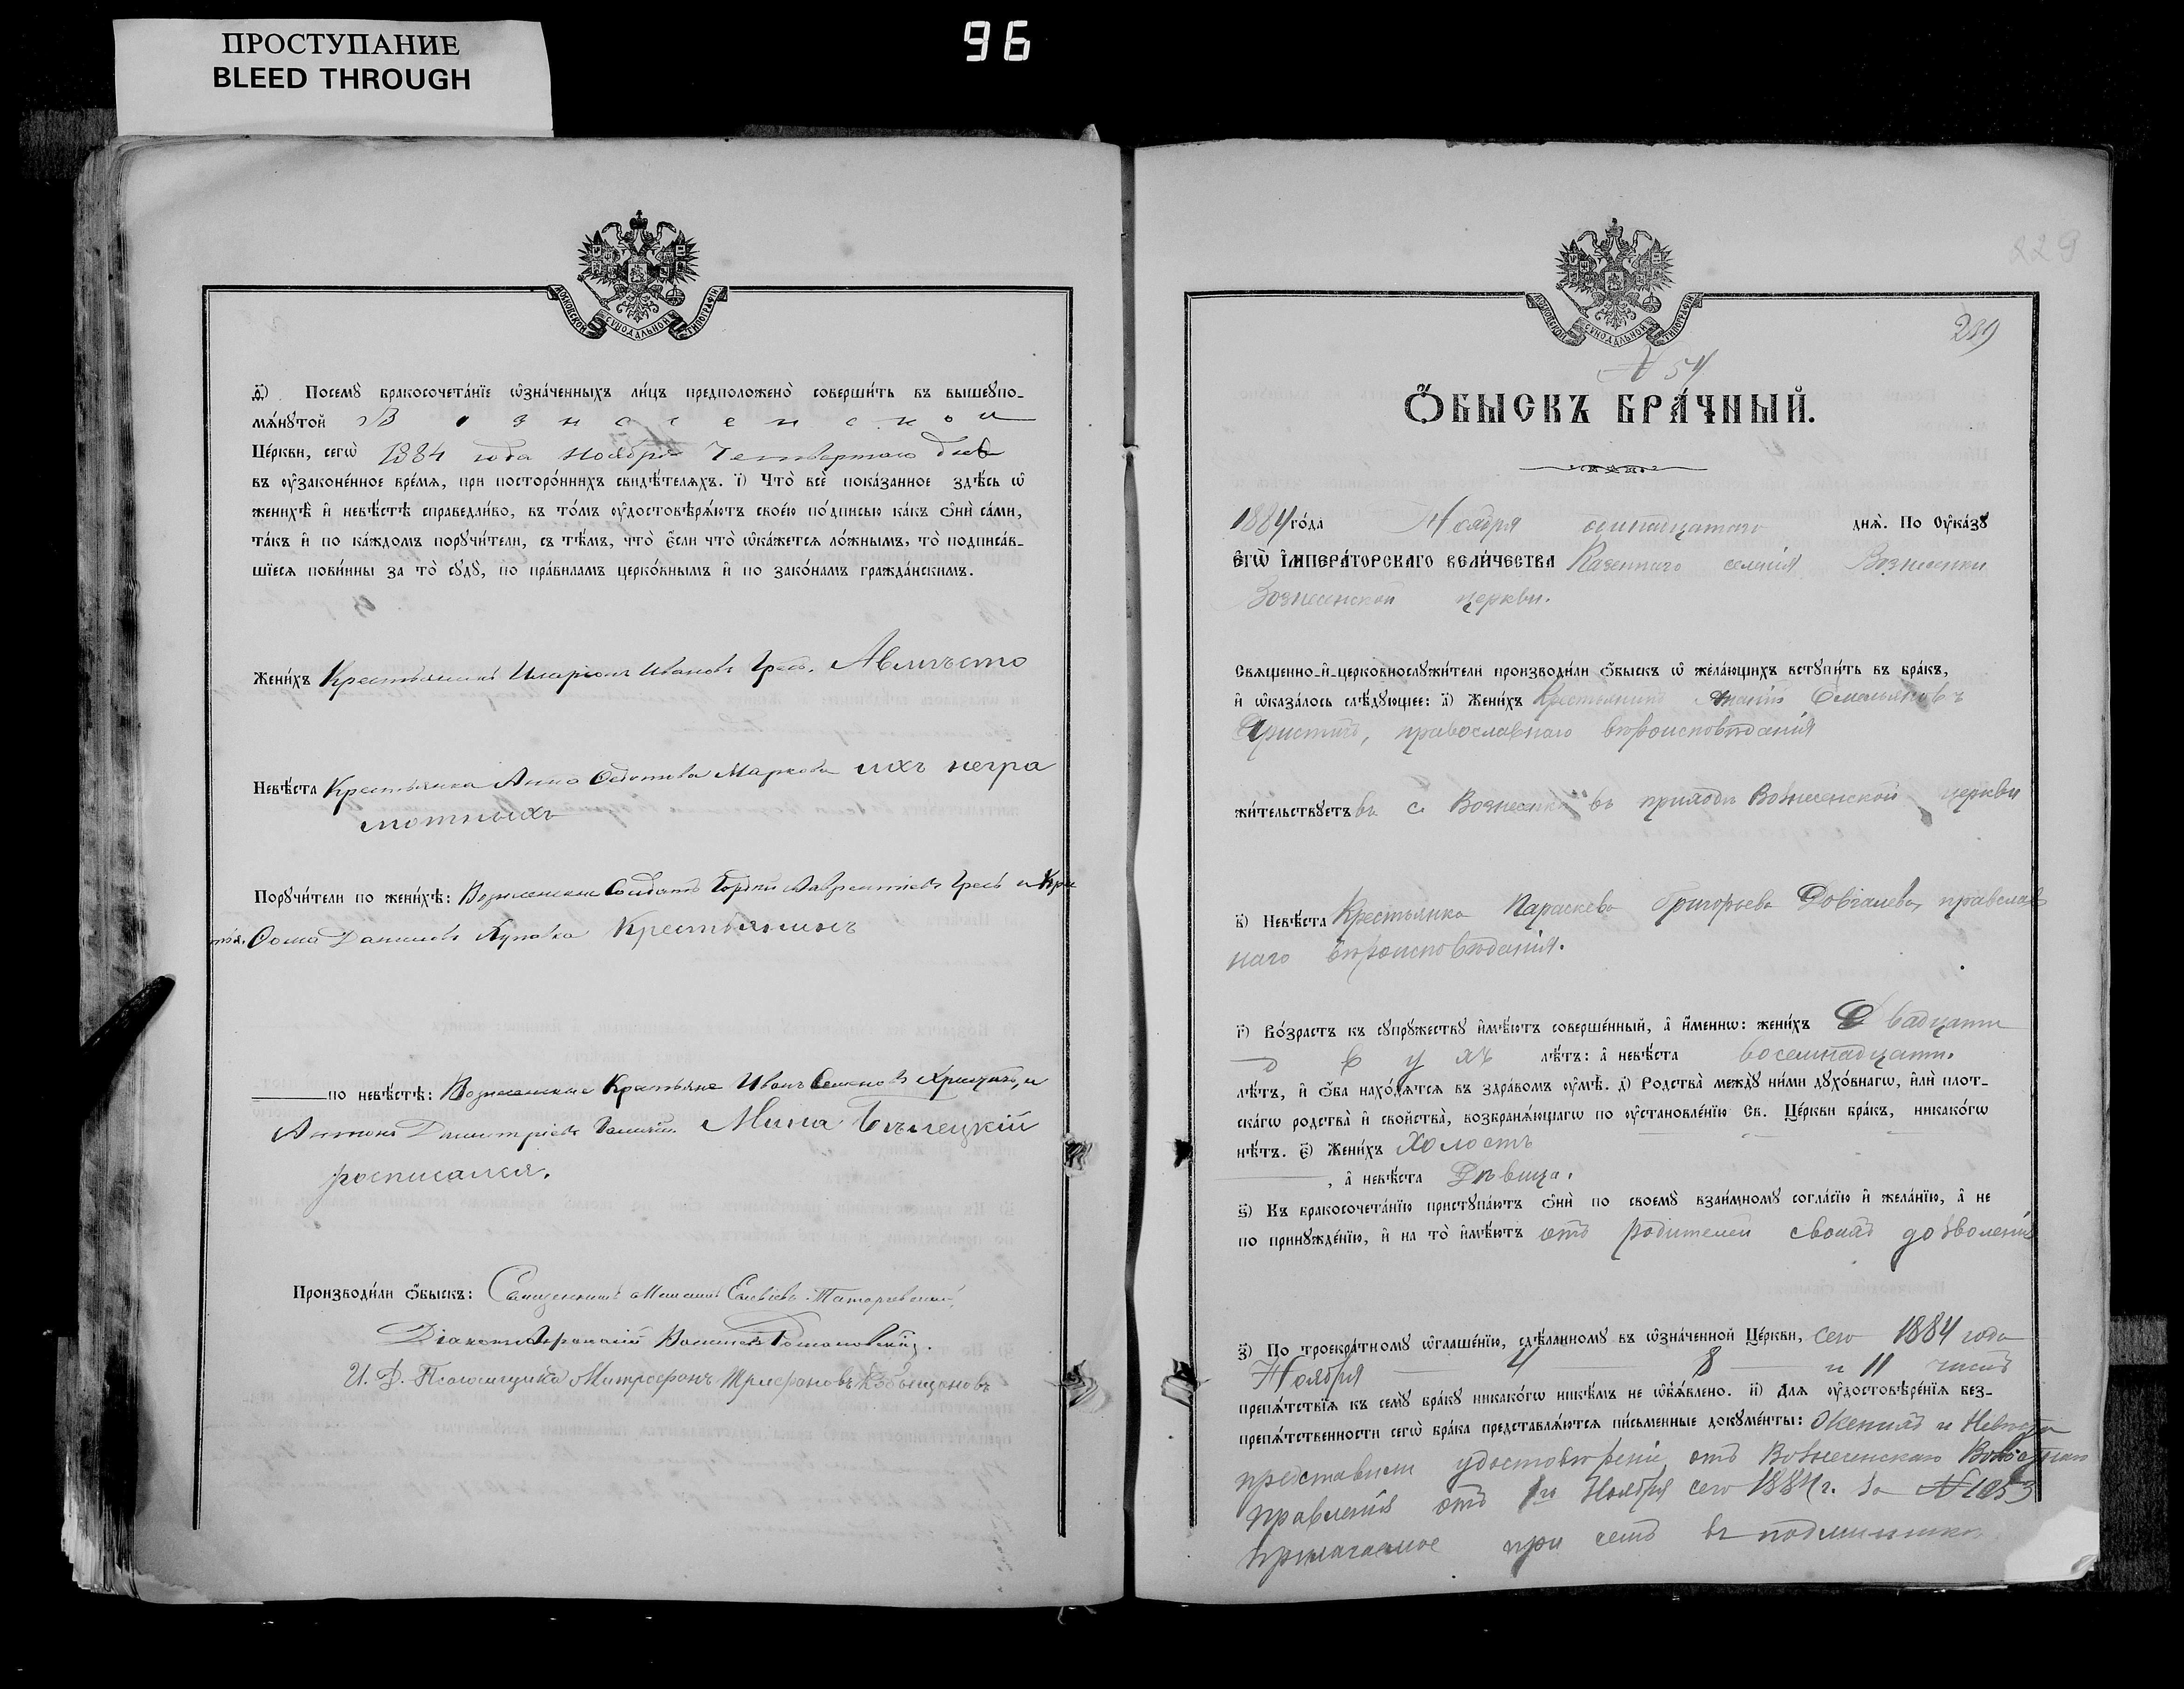 ПРОСТУПАНИЕ
BLEED THROUGH
96
МОСКОВСКОЙ СѴНОДАЛЬНОЙ ТИПОГРАФІИ
д҃і) Посемꙋ̀ бракосочета́нїе ѡ҆зна́ченныхъ ли́цъ предположено̀ соверши́ть въ вышеꙋпо-
мѧ́нꙋтой Вознесенской
Це́ркви, сегѡ̀ 1884 года Ноября Четвертаго дня
въ ᲂу҆зако́ненное вре́мѧ, при посторо́ннихъ свидѣ́телѧхъ. і҃) Что̀ всѐ пока́занное здѣ́сь ѡ҆
женихѣ̀ и҆ невѣ́стѣ справедли́во, въ то́мъ ᲂу҆достовѣрѧ́ютъ свое́ю по́дписью ка́къ ѻ҆нѝ са́ми,
та́къ и҆ по ка́ждомъ порꙋчи́тели, съ тѣ́мъ, что̀ є҆́сли что̀ ѡ҆ка́жетсѧ ло́жнымъ, то̀ подписа́в-
шїесѧ пови́нны за то̀ сꙋдꙋ̀, по пра́виламъ церко́внымъ и҆ по зако́намъ гражда́нскимъ.
Жени́хъ Крестьянинъ Иларіонъ Ивановъ Гресь. Авмѣсто
Невѣ́ста Крестьянка Анна Федотова Маркова ихъ негра
мотныхъ
Порꙋчи́тели по женихѣ̀: Вознесенские Солдатъ Гордій Лаврентіевъ Гресь и Кре
Фома Даниловъ Крестьянинъ
по невѣ́стѣ: Вознесенские Крестьяне Иванъ Семеновъ и
Антонъ Димитріевъ Мина Бѣлецкій
росписался.
Производи́ли ѻ҆́быскъ: Священникъ
Діаконъ Романовскій.
И. Д. Псаломщика Митрофанъ
229
289
N 54
Ѻ҆́БЫСКЪ БРА́ЧНЫЙ.
1884 го́да Ноября днѧ̀. По Оу҆ка́зꙋ
Є҆гѡ̀ И҆мпера́торскаго вели́чества Казеннаго селенія Вознесенки
Вознесенской церкви.
Свѧще́нно-и҆-церковнослꙋжи́тели производи́ли ѻ҆́быскъ ѡ҆ жела́ющихъ встꙋпи́ть въ бра́къ,
и҆ ѡ҆каза́лось слѣ́дꙋющее: а҃) Жени́хъ Крестьянинъ Емельяновъ
православнаго вѣроисповѣданія
жи́тельствꙋетъ въ с. Вознесенкѣ въ приходѣ Вознесенской церкви
в҃) Невѣ́ста Крестьянка Параскева Григорьева Довгалева, православ
наго вѣроисповѣданія.
г҃) Во́зрастъ къ сꙋпрꙋ́жествꙋ и҆мѣ́ютъ соверше́нный, а҆ и҆́меннѡ: жени́хъ Двадцати
двухъ лѣ́тъ: а҆ невѣ́ста восемнадцати.
лѣ́тъ, и҆ ѻ҆́ба нахо́дѧтсѧ въ здра́вомъ ᲂу҆мѣ̀. д҃) Родства̀ междꙋ̀ ни́ми дꙋхо́внагѡ, и҆лѝ плот-
ска́гѡ родства̀ и҆ свойства̀, возбранѧ́ющагѡ по ᲂу҆становле́нїю Св. Це́ркви бра́къ, никако́гѡ
нѣ́тъ. є҃) Жени́хъ Холостъ
, а҆ невѣ́ста Дѣвица.
ѕ҃) Къ бракосочета́нїю пристꙋпа́ютъ ѻ҆нѝ по своемꙋ̀ взаи́мномꙋ согла́сїю и҆ жела́нїю, а҆ не
по принꙋжде́нїю, и҆ на то̀ и҆мѣ́ютъ отъ родителей своихъ дозволеніе
з҃) По троекра́тномꙋ ѡ҆глаше́нїю, сдѣ́ланномꙋ въ ѡ҆зна́ченной Це́ркви, сего 1884 года
Ноября 4 8 и 11 чиселъ
препѧ́тствїѧ къ семꙋ̀ бра́кꙋ никако́гѡ никѣ́мъ не ѡ҆б̾ѧ́влено. и҃) Длѧ ᲂу҆достовѣре́нїѧ без-
препѧ́тственности сегѡ̀ бра́ка представлѧ́ютсѧ пи́сьменные докꙋме́нты: Женихъ и Невѣста
представили удостовѣреніе отъ Вознесенскаго Волостнаго
правленія отъ 1го Ноября сего 1884 г. за N 1053
прилагаемое при семъ въ подлинникѣ